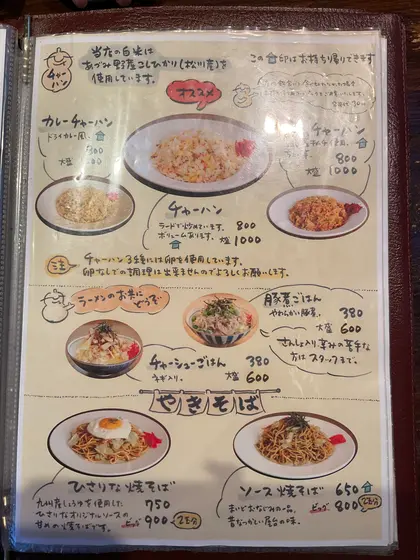 チャーハン
当店の白米は
あづみ野産こしひかり(松川産)を
使用しています。
この 印はお持ち帰りできます
オススメ
カレーチャーハン
ドライカレー風。
大盛
チャーハン
800
大盛 1000
チャーハン
ラードで炒めています。 800
ボリュームあります。 大盛 1000
注 チャーハン3種には卵を使用しています。
卵なしでの調理は出来ませんのでよろしくお願いします。
ラーメンのお共に
どうぞ
豚煮ごはん 380
やわらかい豚煮。
大盛 600
さんしょ入り、辛みの苦手な
方はスタッフまで。
チャーシューごはん 380
ネギ入り。 大盛 600
やきそば
ひさりな焼そば
九州産しょうゆを使用した 750
ひさりなオリジナルソースの
甘めの焼そばです。 ビッグ 900 2玉分
ソース焼そば 650
まいどおなじみの一品。
昔なつかしい屋台の味。 ビッグ 800 2玉分